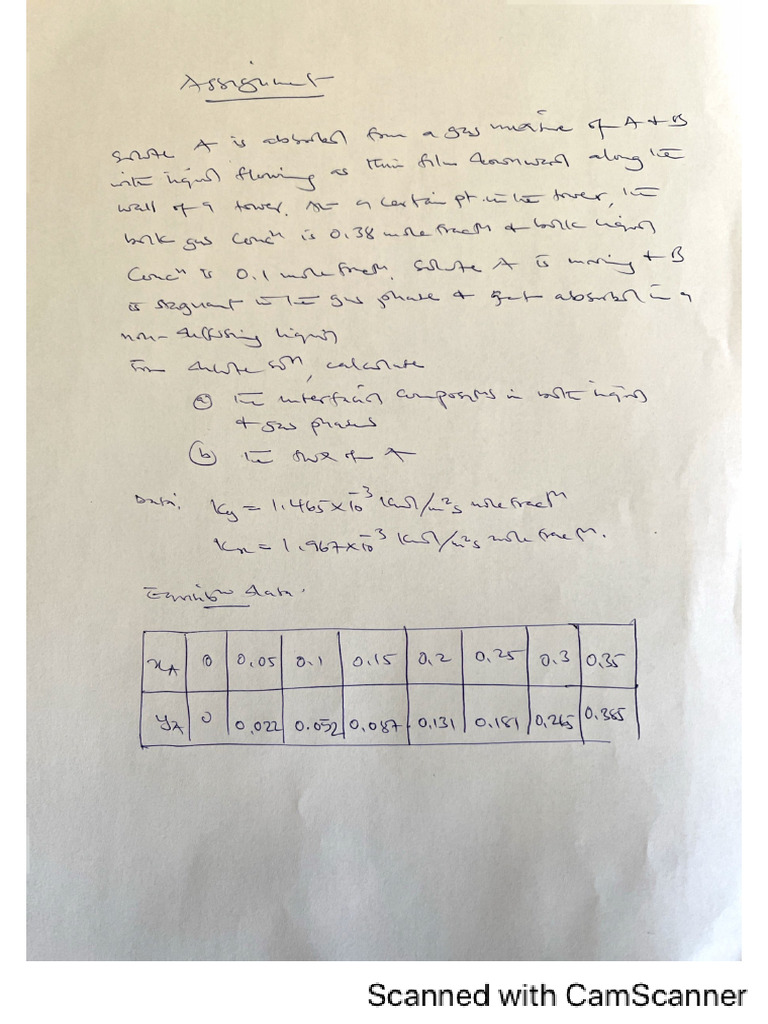 Assignment
Solute A is absorbed from a gas mixture of A & B
with liquid flowing as thin film downward along the
wall of a tower. At a certain pt. in the tower, the
bulk gas concn is 0.38 mole fractn & bulk liquid
Concn is 0.1 mole fractn. Solute A is moving & B
is stagnant in the gas phase & get absorbed in a
non-diffusing liquid
For dilute soln, calculate
(a) The interfacial compositns in both liquid
& gas phases
(b) The flux of A
Data: ky = 1.465 × 10⁻³ kmol/m²s mole fractn
kx = 1.967 × 10⁻³ kmol/m²s mole fractn.
Equilibm data.
xA 0 0.05 0.1 0.15 0.2 0.25 0.3 0.35
yA 0 0.022 0.052 0.087 0.131 0.181 0.265 0.385
Scanned with CamScanner